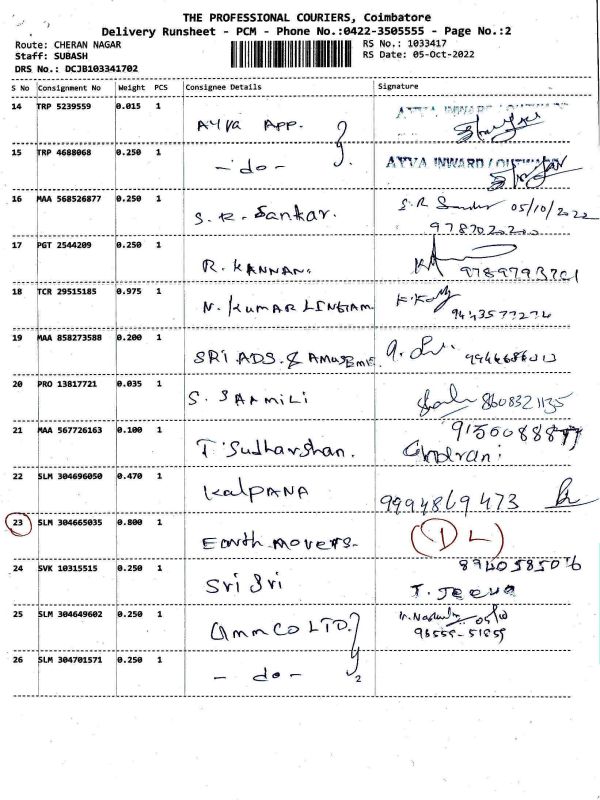 THE PROFESSIONAL COURIERS, Coimbatore
Delivery Runsheet - PCM - Phone No.:0422-3505555 - Page No.:2
Route: CHERAN NAGAR RS No.: 1033417
Staff: SUBASH RS Date: 05-Oct-2022
DRS No.: DCJB103341702
S No Consignment No Weight PCS Consignee Details Signature
14 TRP 5239559 0.015 1 Ayya App.
15 TRP 4688068 0.250 1 - do - AYYA INWARD / OUTWARD
16 MAA 568526877 0.250 1 S. R. Sankar. S.R 05/10/2022
17 PGT 2544209 0.250 1 R. KANNAN.
18 TCR 29515185 0.975 1 N. KUMAR LINGAM
19 MAA 858273588 0.200 1 SRI ADS. &
20 PRO 13817721 0.035 1 S. SARMILI 8608321135
21 MAA 567726163 0.100 1 T. Sudharshan. Indrani
22 SLM 304696050 0.470 1 Kalpana 9994869473
23 SLM 304665035 0.800 1 Earth movers. (DL)
24 SVK 10315515 0.250 1 Sri Sri
25 SLM 304649602 0.250 1 Ammco LTD.
26 SLM 304701571 0.250 1 - do - 2